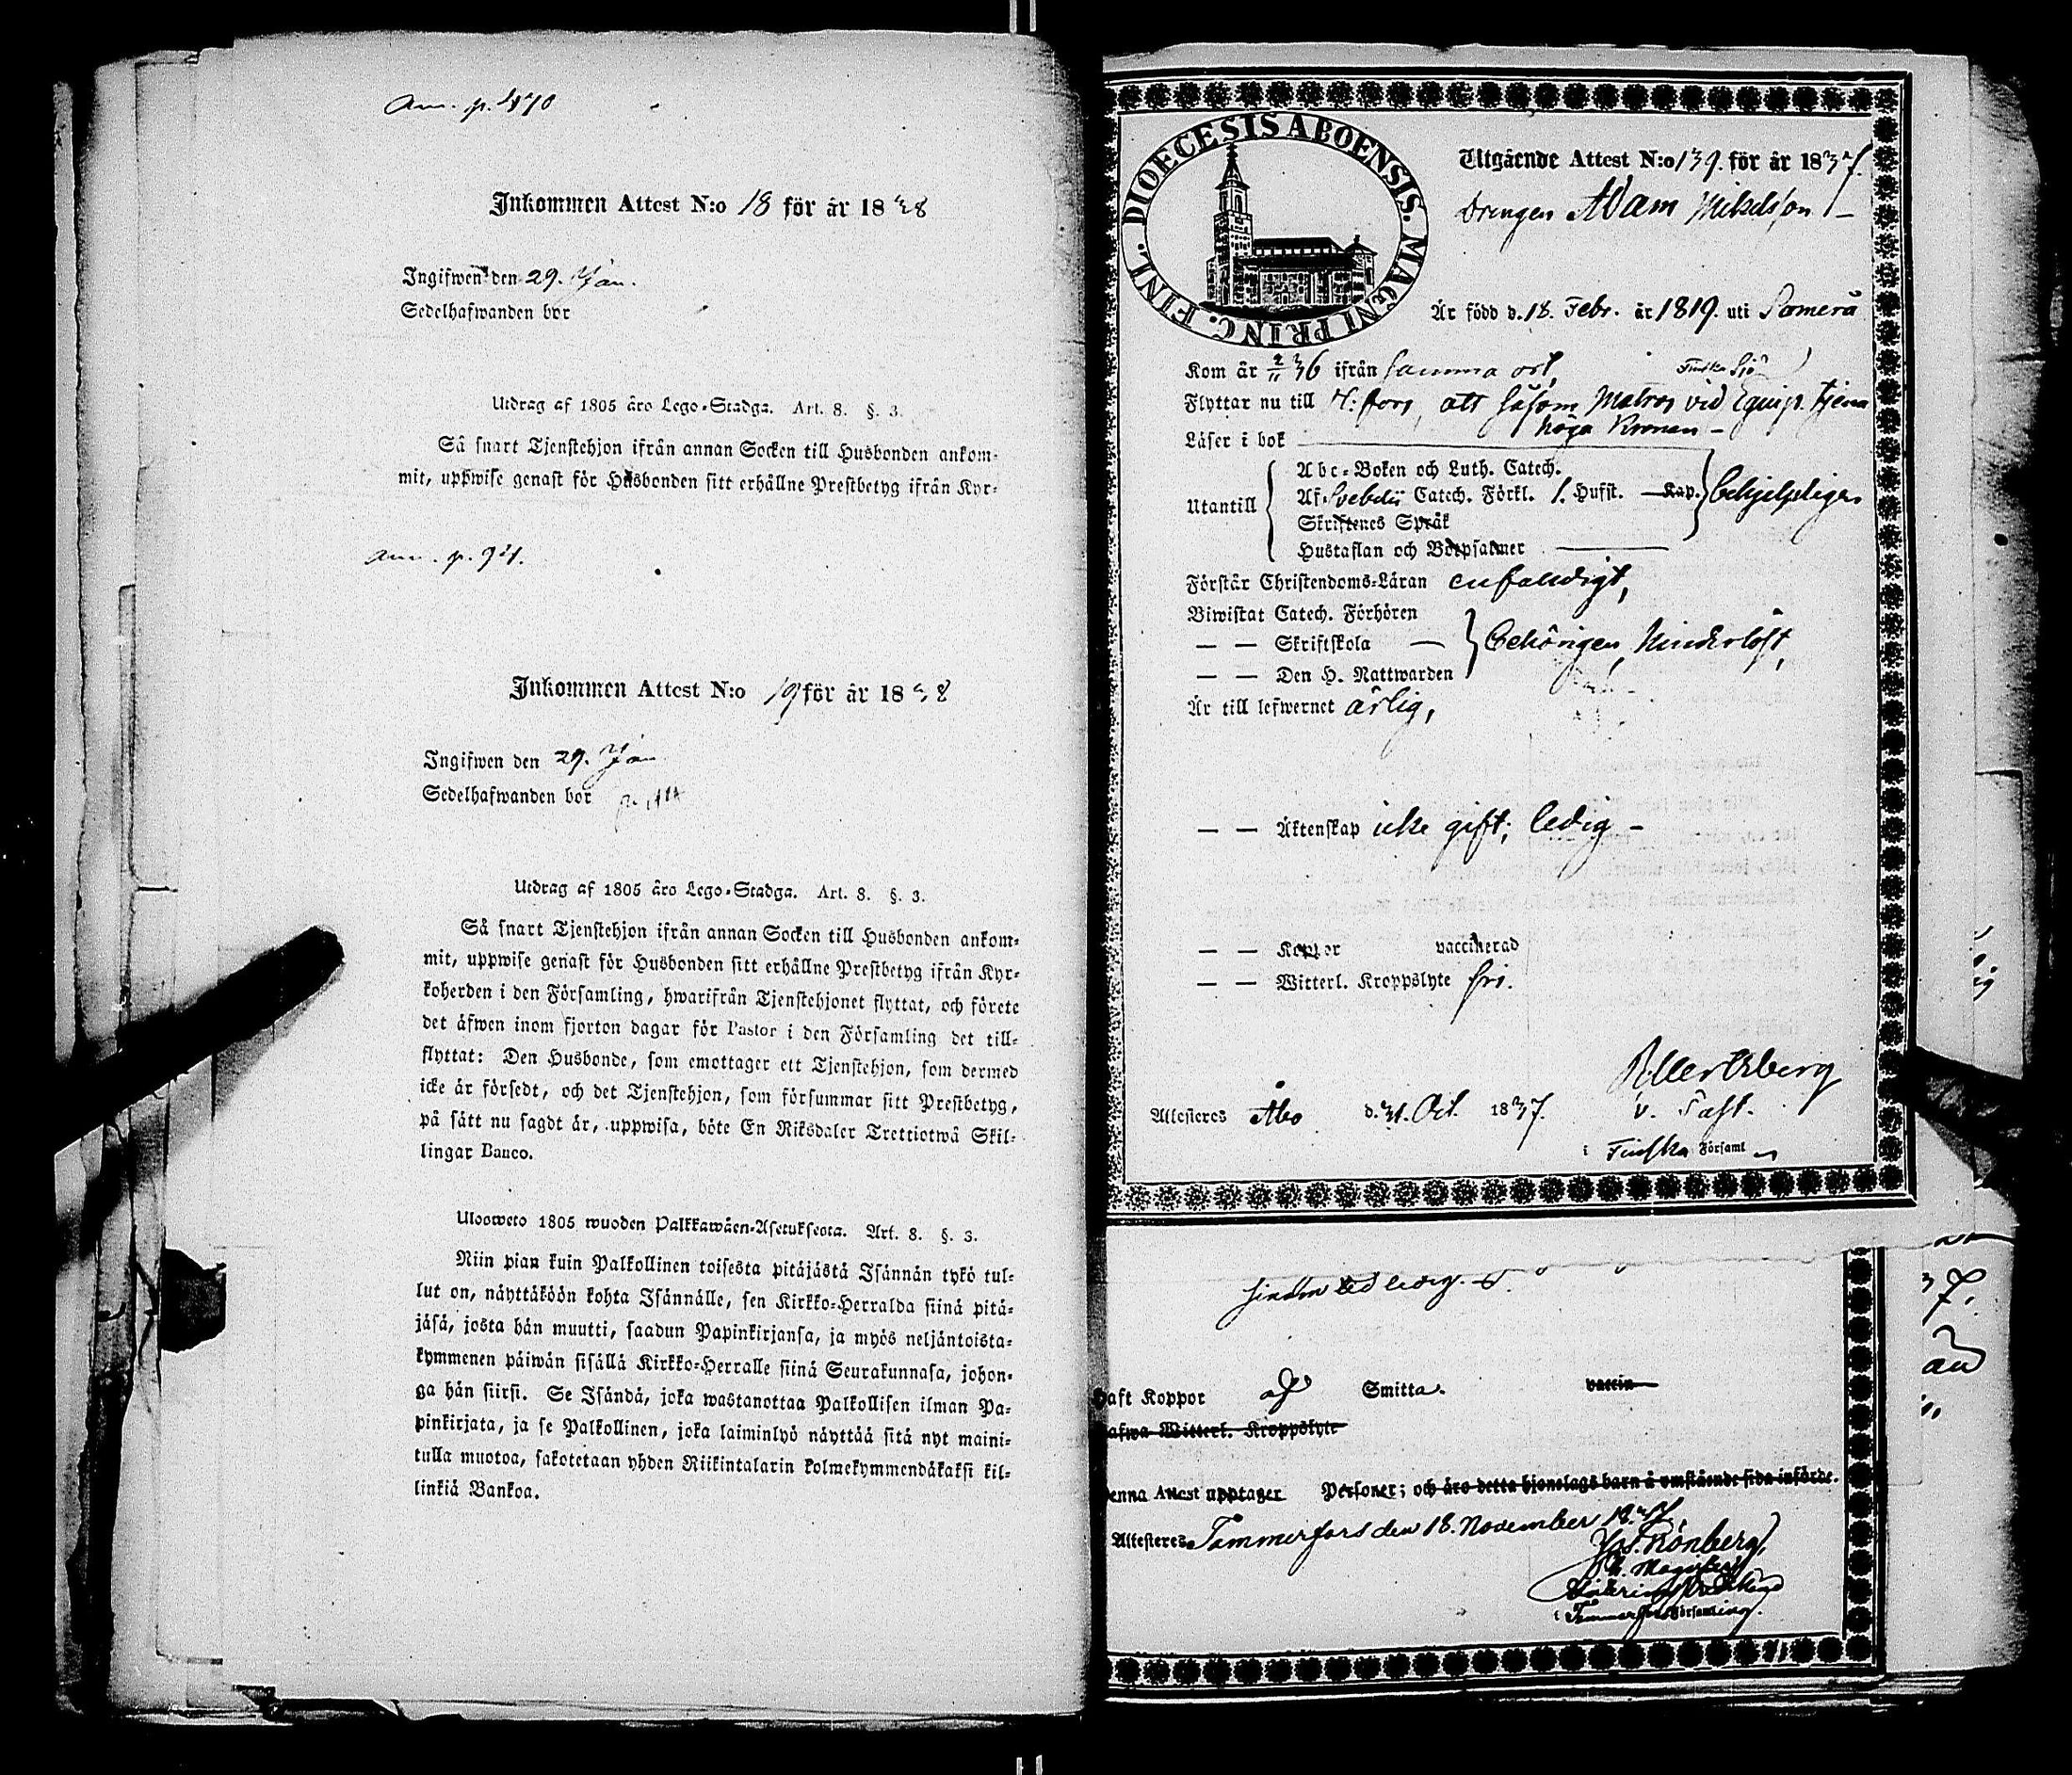 Ann. p. 470
Inkommen Attest N:o 18 för år 1838
Ingifwen den 29. Jan.
Sedelhafwanden bor
Utdrag af 1805 års Lego-Stadga. Art. 8. §. 3.
Så snart Tjenstehjon ifrån annan Socken till Husbonden ankom-
mit, uppwise genast för Husbonden sitt erhållne Prestbetyg ifrån Kyr-
Ann. p. 94.
Inkommen Attest N:o 19 för år 1838
Ingifwen den 29. Jan
Sedelhafwanden bor
Utdrag af 1805 års Lego-Stadga. Art. 8. §. 3.
Så snart Tjenstehjon ifrån annan Socken till Husbonden ankom-
mit, uppwise genast för Husbonden sitt erhållne Prestbetyg ifrån Kyr-
koherden i den Församling, hwarifrån Tjenstehjonet flyttat, och förete
det äfwen inom fjorton dagar för Pastor i den Församling det till-
flyttat: Den Husbonde, som emottager ett Tjenstehjon, som dermed
icke är försedt, och det Tjenstehjon, som försummar sitt Prestbetyg,
på sätt nu sagdt är, uppwisa, böte En Riksdaler Trettiotwå Skil-
lingar Banco.
Uloswetø 1805 wuoden Palkkawäen-Asetuksesta. Art. 8. §. 3.
Niin pian kuin Palkollinen toisesta pitäjästä Isännän tykö tul-
lut on, näyttäköön kohta Isännälle, sen Kirkko-Herralda siinä pitä-
jäsä, josta hän muutti, saadun Papinkirjansa, ja myös neljäntoista-
kymmenen päiwän sisällä Kirkko-Herralle siinä Seurakunnasa, johon-
ga hän siirsi. Se Isändä, joka wastanottaa Palkollisen ilman Pa-
pinkirjata, ja se Palkollinen, joka laiminlyö näyttää sitä nyt maini-
tulla muotoa, sakotetaan yhden Riikintalarin kolmekymmendäkaksi kil-
linkiä Bankoa.
DIOECESIS ABOENSIS. MAGNI PRINC. FINL.
Utgående Attest N:o 139. för år 1837.
Drengen Adam Mikelsson
Är född d. 18. Febr. år 1819. uti Somero
Kom år 2/11 36 ifrån samma ort,
Finska Sjö
Flyttar nu till H:fors, att såsom Matros vid Equip. tjena
höga Kronan -
Läser i bok
Abc-Boken och Luth. Catech.
Utantill Af Svebelii Catech. Förkl. 1. Hufst. Kap. behjelpligen
Skriftenes Språk
Hustaflan och Botpsalmer
Förstår Christendoms-Läran enfaldigt,
Biwistat Catech. Förhören
— — Skriftskola — behörigen, hinderlöst,
— — Den H. Nattwarden
Är till lefwernet ärlig,
— — Äktenskap icke gift; ledig -
— — Koppor vaccinerad
— — Witterl. Kroppslyte fri.
v. Past.
Attesteres Åbo d. 31. Oct. 1837.
i Finska Församl
ledig.
haft Koppor af Smitta. vaccin
hafwa Witterl. Kroppslyte
Denna Attest upptager Personer; och äro detta hjonelags barn å omstående sida införde.
Attesteres Tammerfors den 18. November 1837.
Jos. Rönberg,
Ph. Magister
i Tammerfors Församling.